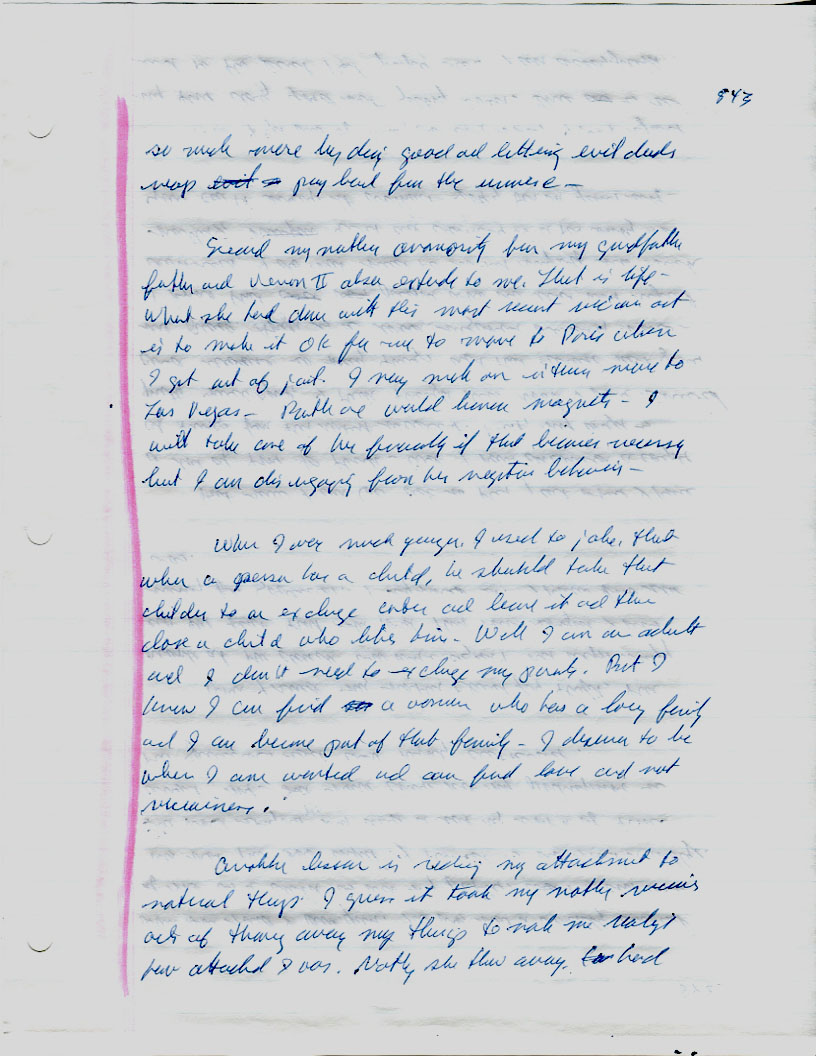 843
so much more by doing good and letting evil deeds
reap evil pay back from the universe –
Second my mother animosity for my grandfather
father and Vernon II also extends to me. That is life –
What she had done with this most recent vicious act
is to make it OK for me to move to Paris when
I get out of jail. I may make an interim move to
Las Vegas – Both are world human magnets – I
will take care of her financially if that becomes necessary
but I am disengaging from her negative behavior –
When I was much younger, I used to joke, that
when a person has a child, he should take that
children to an exchange center and leave it and then
chose a child who likes him – Well I am an adult
and I don't need to exchange my parents. But I
know I can find a woman who has a loving family
and I can become part of that family – I deserve to be
where I am wanted and can find love and not
viciousness.
Another lesson is reducing my attachment to
material things. I guess it took my mother vicious
acts of throwing away my things to make me realize
how attached I was. Nothing she threw away had